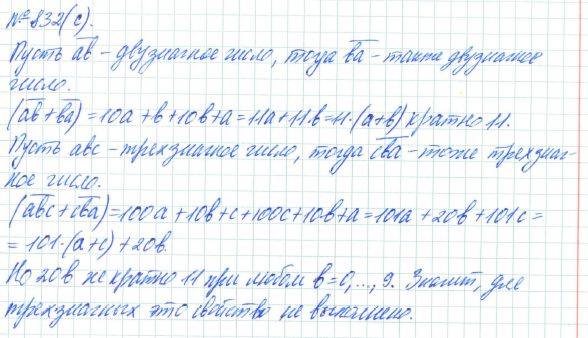 № 832(с).
Пусть a̅b̅ - двузначное число, тогда b̅a̅ - также двузначное
число.
(a̅b̅ + b̅a̅) = 10a + b + 10b + a = 11a + 11·b = 11·(a+b) кратно 11.
Пусть abc - трехзначное число, тогда c̅b̅a̅ - тоже трехзнач-
ное число.
(a̅b̅c̅ + c̅b̅a̅) = 100a + 10b + c + 100c + 10b + a = 101a + 20b + 101c =
= 101·(a+c) + 20b.
Но 20b не кратно 11 при любом b = 0, ..., 9. Значит, для
трехзначных это свойство не выполнено.